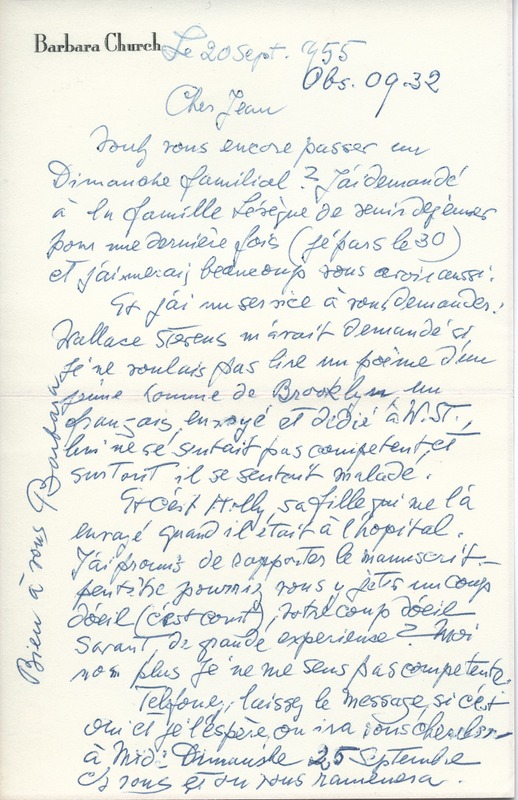 Barbara Church
Le 20 Sept. 1955
Obs. 09.32
Cher Jean
vous encore passer un
Dimanche familial ? J'ai demandé
à la famille de venir déjeuner
pour une dernière fois (je pars le 30)
et j'aimerais beaucoup vous avoir aussi.
Et j'ai un service à vous demander.
Wallace Stevens m'avait demandé si
je ne voulais pas lire un poème d'un
jeune homme de Brooklyn, en
français, envoyé et dédié à W.ST.,
lui ne se sentait pas competent, et
surtout il se sentait malade.
Et c'est Holly, sa fille qui me l'a
envoyé quand il était à l'hopital.
J'ai promis de rapporter le manuscrit –
peutêtre pourriez vous y jeter un coup
d'oeil (c'est court), votre coup d'oeil
savant, de grande experience ? Moi
non plus je ne me sens pas competente.
Telefonez, laissez le message, si c'est
oui et je l'espère, on ira vous chercher
à Midi Dimanche 25 Septembre
chez vous et on vous ramenera.
Bien à vous Barbara